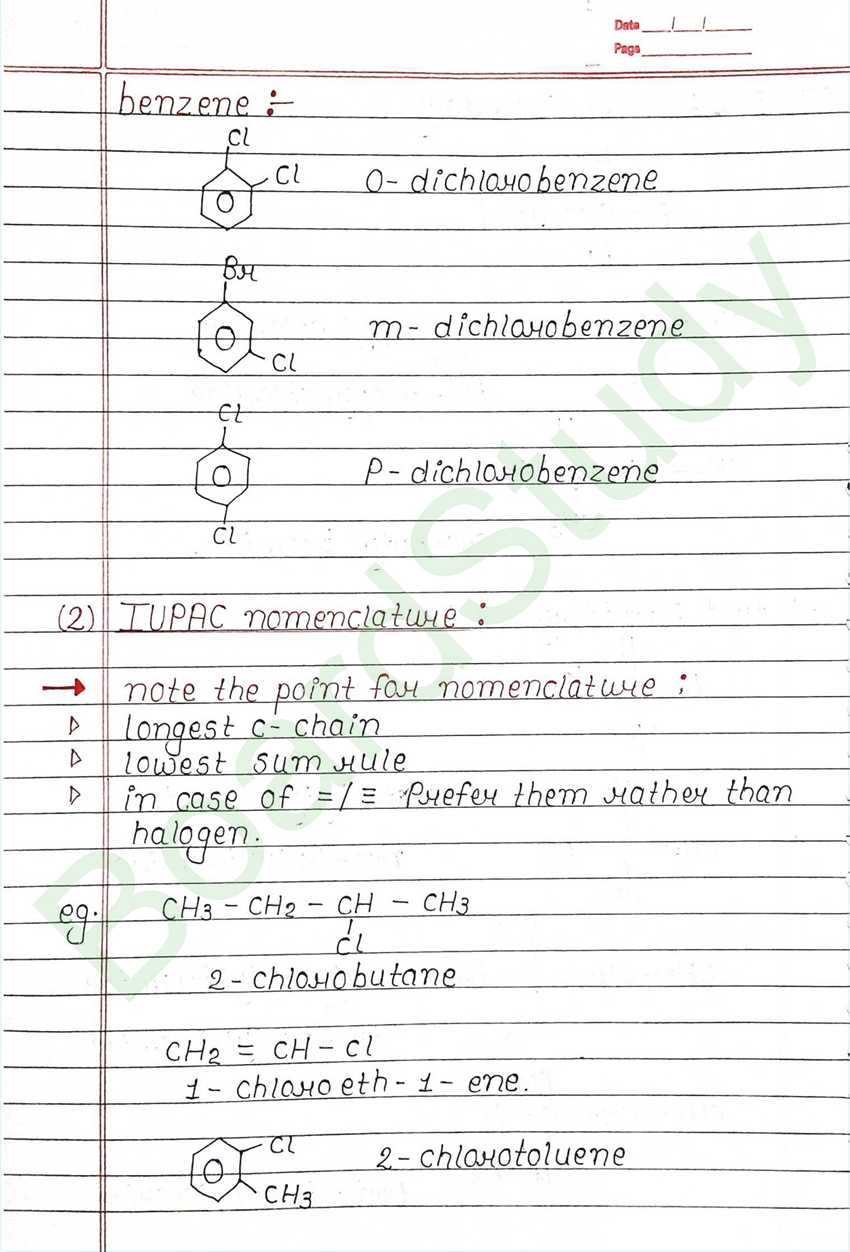 Date / /
Page
benzene :-
Cl
Cl
O- dichlorobenzene
Br
m- dichlorobenzene
Cl
Cl
P- dichlorobenzene
Cl
(2) IUPAC nomenclature :
→ note the point for nomenclature :
▷ longest c- chain
▷ lowest sum rule
▷ in case of =/≡ Prefer them rather than
halogen.
eg. CH3 - CH2 - CH - CH3
Cl
2- chlorobutane
CH2 = CH - Cl
1- chloroeth- 1- ene.
Cl
2- chlorotoluene
CH3
BoardStudy